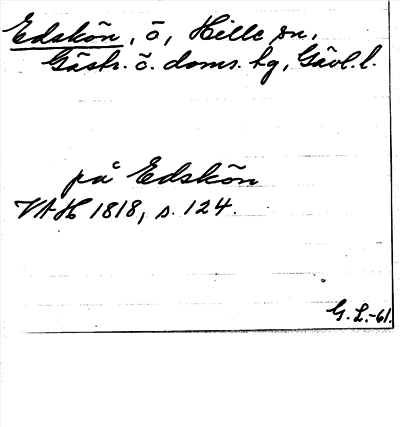 Edskön, ö, Hille sn,
Gästr. ö. doms. hg, Gävl. l.
på Edskön
VAH 1818, s. 124.
G. L.-61.